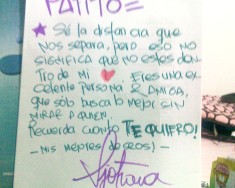 PATITO=
Sé la distancia que
NOS separa, pero eso NO
SIGNIFICA que no estes den
Tro de mi Eres una ex
celente persona & AMIGA,
que sólo busca lo mejor SIN
MIRAR A QUIEN.
Recuerda cuanto TE QUIERO!
- MIS MEJORES DESEOS) -